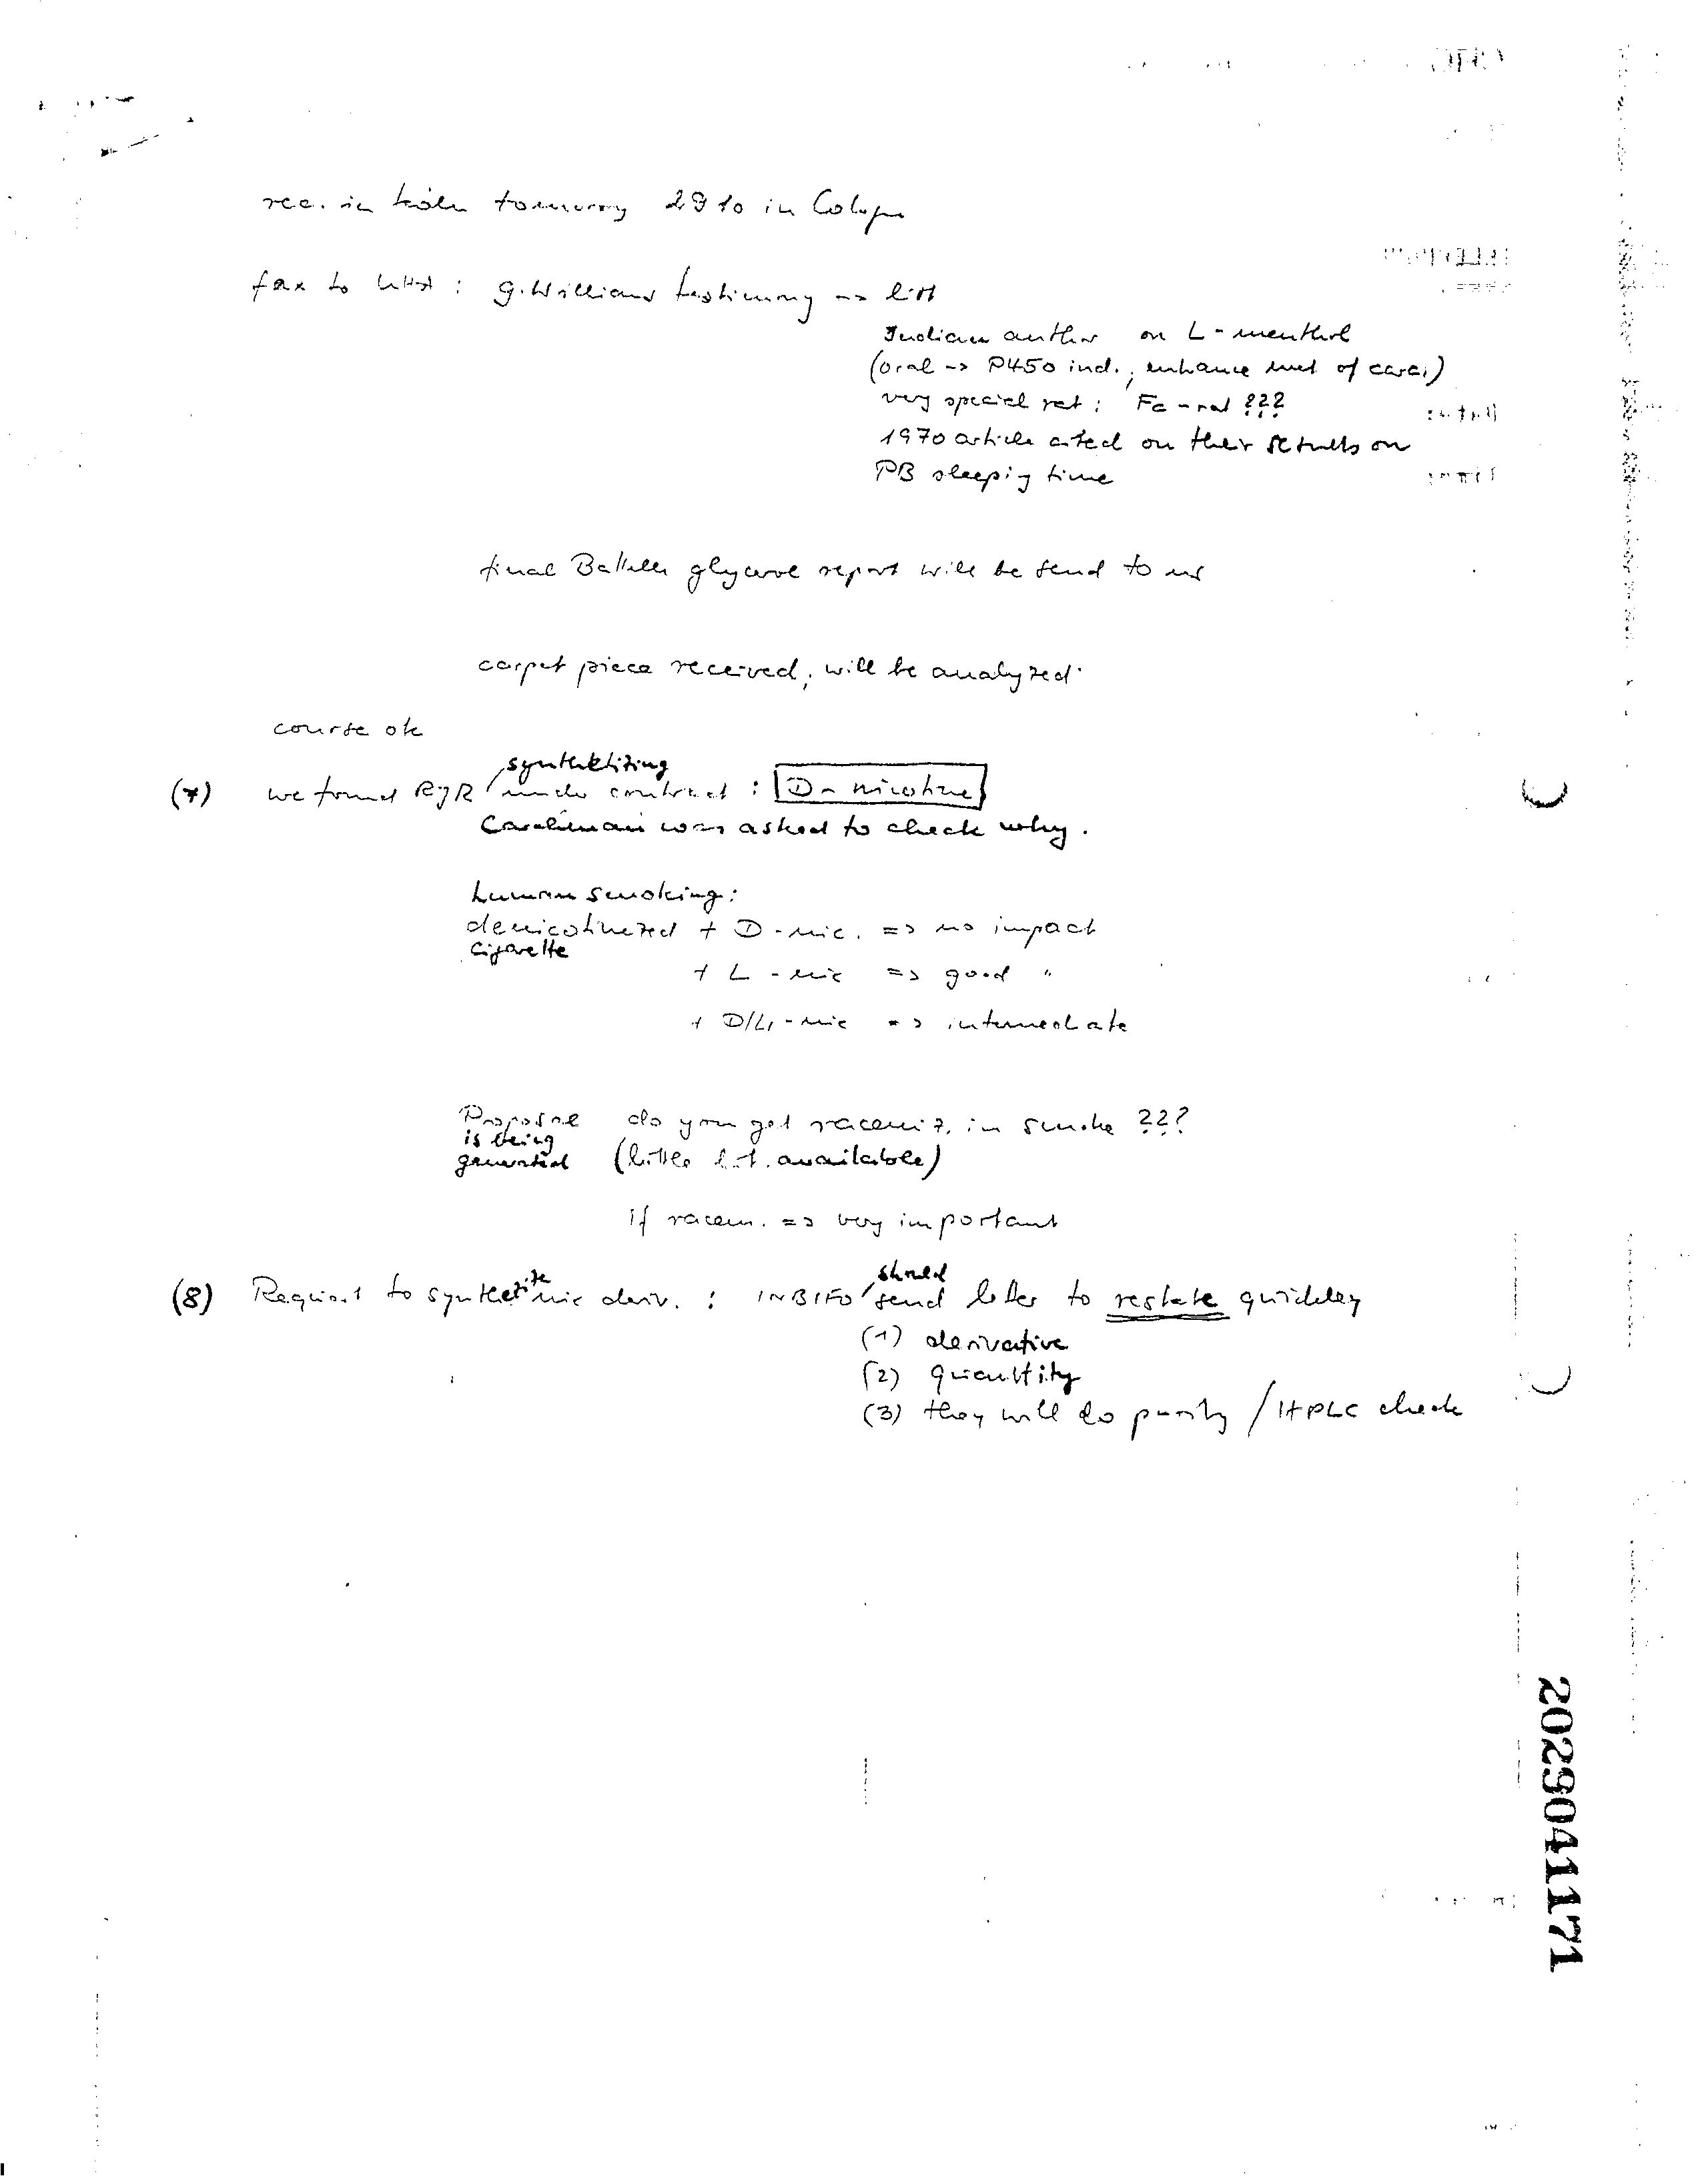 rec. in Köln tomorrow 29 10 in Cologne
fax to : G. Williams testimony -> lit
Indian author on L-menthol
(oral -> P450 ind., enhance met of carc.)
very special rat: Fc-rat ???
1970 article cited on their results on
PB sleeping time
final Battelle glycerol report will be send to us
carpet piece received, will be analyzed
course ok
synthetizing
(7) we found RJR under contract : D-nicotine
was asked to check why.
human smoking:
denicotinized + D-nic. => no impact
cigarette
+ L-nic => good "
+ D/L-nic => intermediate
Proposal do you get racemiz. in smoke ???
is being
generated (little lit. available)
if racem. => very important
should
(8) Request to synthetize nic deriv. : INBIFO send letter to restate quickley
(1) derivative
(2) quantity
(3) they will do purity / HPLC check
2029041171